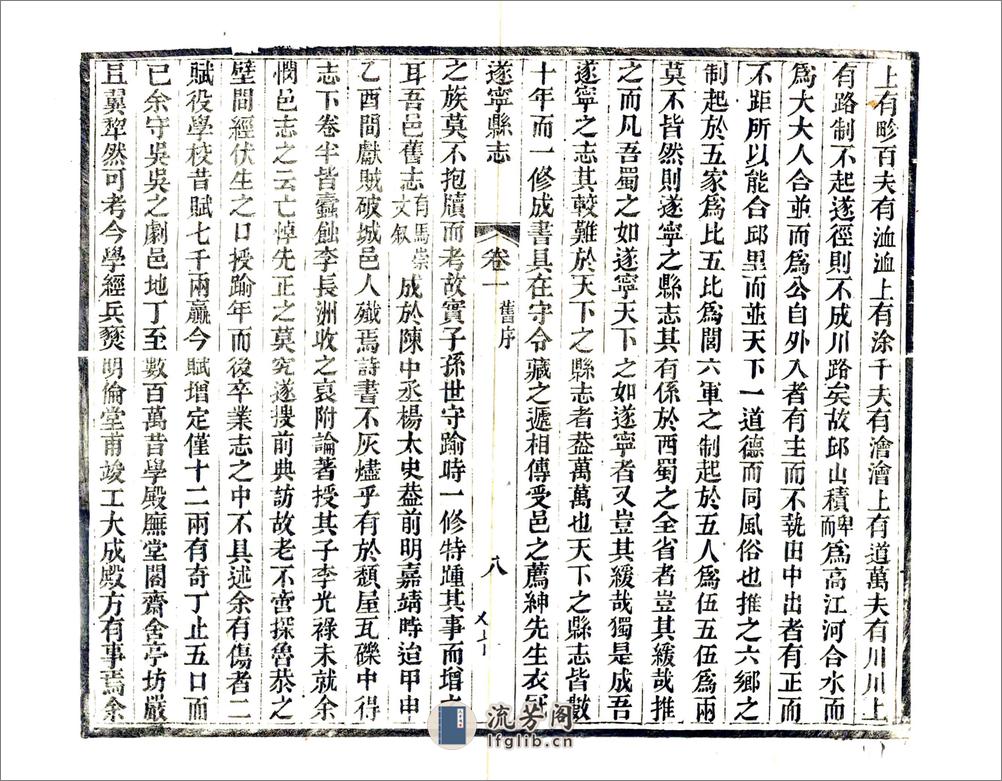 上有畛百夫有洫洫上有涂千夫有澮澮上有道萬夫有川川上
有路制不起遂徑則不成川路矣故邱山積卑而爲高江河合水而
爲大大人合並而爲公自外入者有主而不執由中出者有正而
不距所以能合邱里而並天下一道德而同風俗也推之六鄉之
制起於五家爲比五比爲閭六軍之制起於五人爲伍五伍爲兩
莫不皆然則遂寧之縣志其有係於西蜀之全省者豈其緩哉推
之而凡吾蜀之如遂寧天下之如遂寧者又豈其緩哉獨是成吾
遂寧之志其較難於天下之縣志者葢萬萬也天下之縣志皆數
十年而一修成書具在守令藏之遞相傳受邑之薦紳先生衣冠
遂寧縣志
卷一
舊序
八
之族莫不抱牘而考故實子孫世守踰時一修特踵其事而增之
耳吾邑舊志有馬崇文叙成於陳中丞楊太史葢前明嘉靖時迨甲申
乙酉間獻賊破城邑人殲焉詩書不灰燼乎有於頽屋瓦礫中得
志下卷半皆蠹蝕李長洲收之哀附論著授其子李光祿未就余
憫邑志之云亡悼先正之莫究遂搜前典訪故老不啻探魯恭之
壁間經伏生之口授踰年而後卒業志之中不具述余有傷者二
賦役學校昔賦七千兩贏今賦增定僅十二兩有奇丁止五口而
已余守吳吳之劇邑地丁至數百萬昔學殿廡堂閣齋舍亭坊嚴
且翼犂然可考今學經兵燹明倫堂甫竣工大成殿方有事焉余
流芳阁
lfglib.cn